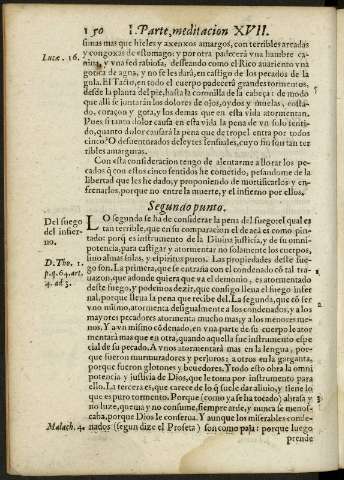 150 I. Parte, meditacion XVII.
simas mas que hieles y axenxos amargos, con terribles arcadas
y congoxas de estomago: y por otra padecerà vna hambre ca-
Lucæ. 16. nina, y vna sed rabiosa, desseando como el Rico auariento vna
gotica de agua, y no se les darà, en castigo de los pecados de la
gula. El Tacto, en todo el cuerpo padecerà grandes tormentos,
desde la planta del pie, hasta la coronilla de la cabeça: de modo
que alli se juntaràn los dolores de ojos, oydos y muelas, costa-
do, coraçon y gota, y los demas que en esta vida atormentan.
Pues si tanto dolor causa en esta vida la pena de vn solo senti-
do, quanto dolor causarà la pena que de tropel entra por todos
cinco? O desuenturados deleytes sensuales, cuyo fin son tan ter
ribles amarguras.
Con esta consideracion tengo de alentarme a llorar los pe-
cados que con estos cinco sentidos he cometido, pesandome de la
libertad que les he dado, y proponiendo de mortificarlos y en-
frenarlos, porque no entre la muerte, y el infierno por ellos.
Segundo punto.
Del fuego
del infier-
no.
LO segundo se ha de considerar la pena del fuego: el qual es
tan terrible, que en su comparacion el de acà es como pin-
tado: porque es instrumento de la Diuina justicia, y de su omni-
potencia, para castigar y atormentar no solamente los cuerpos,
D. Tho. 1.
p. q. 64. art.
4. ad 3.
sino almas solas, y espiritus puros. Las propiedades deste fue-
go son. La primera, que se entraña con el condenado con tal tra-
uazon, que adonde quiera que va el demonio, es atormentado
deste fuego, y podemos dezir, que consigo lleua el fuego infer
nal, porque lleua la pena que recibe del. La segunda, que con ser
vno mismo, atormenta desigualmente a los condenados, y a los
mayores pecadores atormenta mucho mas, y a los menores me-
nos. Y a vn mismo condenado, en vna parte de su cuerpo le ator
mentarà mas que en otra, quando aquella fue instrumento espe
cial de su pecado. A vnos atormentarà mas en la lengua, por-
que fueron murmuradores y perjuros: a otros en la garganta,
porque fueron glotones y beuedores. Y todo esto obra la omni
potencia y justicia de Dios, que le toma por instrumento para
ello. La tercera es, que carece de lo que suele dar aliuio, y tiene lo
que es puro tormento. Porque (como ya se ha tocado) abrasa y
no luze, quema y no consume, siempre arde, y nunca se menos-
caba, porque Dios le conserua. Y aunque los miserables conde-
Malach. 4. nados (segun dize el Profeta) son como paja: porque luego
prende